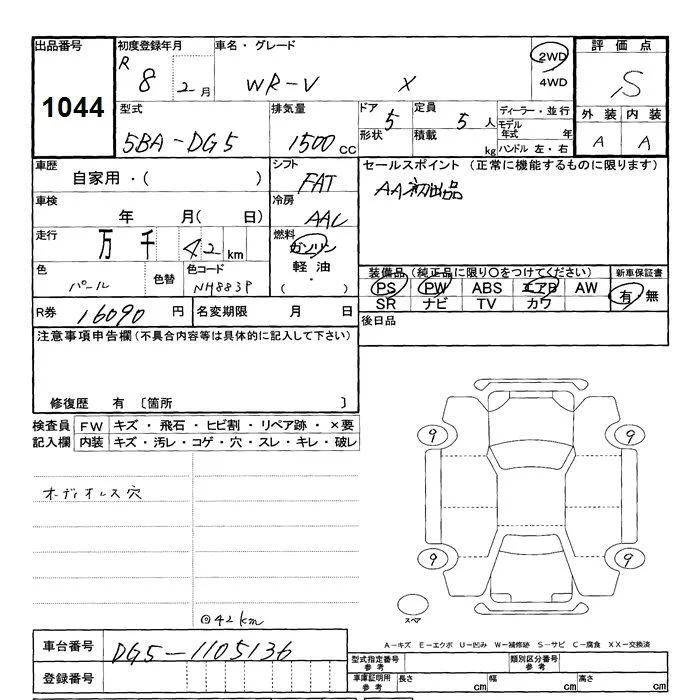 出品番号 初度登録年月 車名・グレード 評価点
1044 R 8 2月 WR-V X 2WD 4WD S
型式 排気量 ドア 定員 ディーラー・並行 外装 内装
5BA-DG5 1500cc 5 5人 モデル年式 年 A A
形状 積載 kg ハンドル 左・右
車歴 シフト セールスポイント (正常に機能するものに限ります)
自家用・( ) FAT AA初出品
車検 冷房
年 月( 日) AAC
走行 燃料
万 千 42 km ガソリン
軽油・( )
色 色替 色コード 装備品(純正品に限り○をつけてください) 新車保証書
パール NH883P PS PW ABS エアB AW 有・無
SR ナビ TV カワ
R券 16090円 名変期限 月 日 後日品
注意事項申告欄(不具合内容等は具体的に記入して下さい)
修復歴 有 〔箇所 〕
検査員 FW キズ・飛石・ヒビ割・リペア跡・×要
記入欄 内装 キズ・汚レ・コゲ・穴・スレ・キレ・破レ
9 9
オーディオレス穴
9 9
スペア
◎42km
A-キズ E-エクボ U-凹み W-補修跡 S-サビ C-腐食 XX-交換済
車台番号 DG5-1105136
型式指定番号 参考 類別区分番号 参考
登録番号 車庫証明用 参考 長さ cm 幅 cm 高さ cm